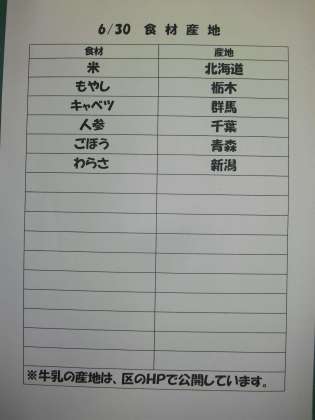 6/30 食材産地
食材 産地
米 北海道
もやし 栃木
キャベツ 群馬
人参 千葉
ごぼう 青森
わらさ 新潟
※牛乳の産地は、区のHPで公開しています。